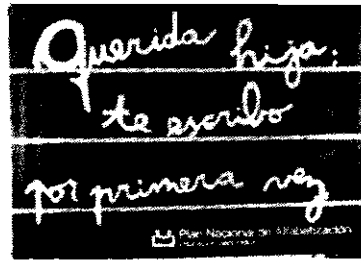 Querida hija:
te escribo
por primera vez
Plan Nacional de Alfabetización